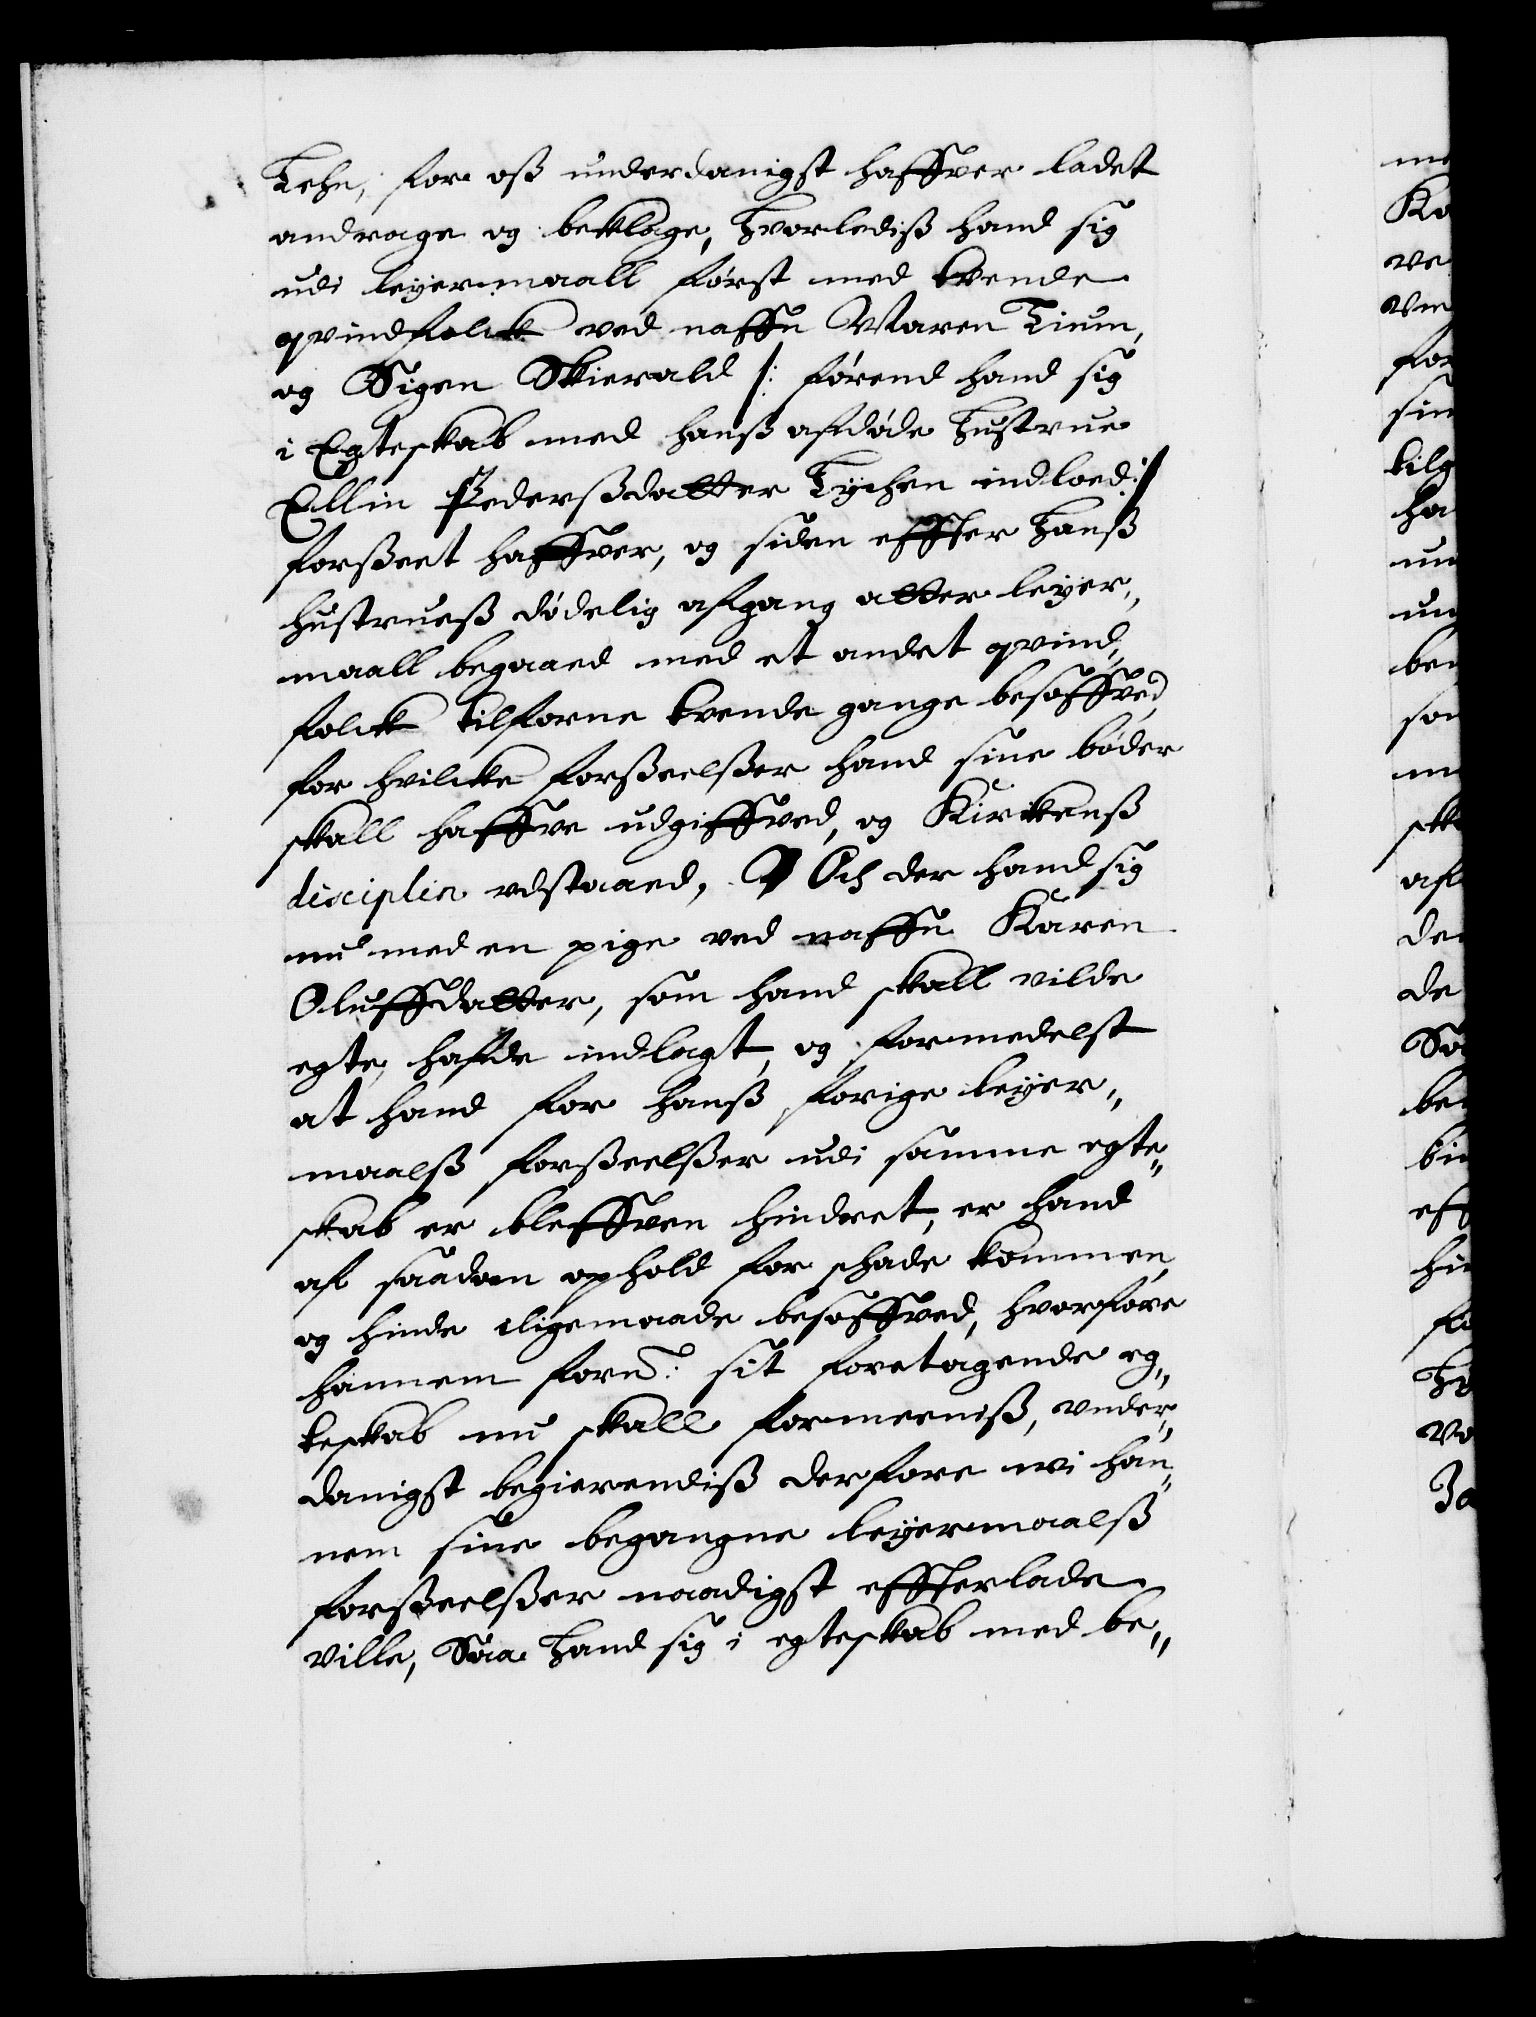 Lehn, for oß underdanigst haffver ladet
andrage og beklage, hvorlediß hand sig
udi leyermaall først med tvende
qvindfolck ved naffn Maren Tium,
og Sigen Skierald /: førend hand sig
i Egteskab med hanß afdøde Hustrue
Ellin Pederßdatter Tychen indloed :/
forßeet haffver, og siden effter hanß
hustrueß dødelig afgang atter leyer„
maall begaaed med et andet qvind„
folck tilforne tvende gange besoffved,
for hvilcke forßeelßer hand sine bøder
skall haffve udgiffved, og Kirckenß
disciplin udstaaed, Och der hand sig
nu med en pige ved naffn Karen
Oluffsdatter, som hand skall vilde
egte, hafde indlagt, og formedelst
at hand for hanß forige leyer„
maalß forßeelßer udi samme egte„
skab er bleffven hindret, er hand
af saadan ophold for skade kommen,
og hinde ligemaade besoffved, hvorfore
hannem fornᵉ: sit foretagende eg„
teskab nu skall formeeniß, under„
danigst begierendiß derfore wi han„
nem sine begangne leyermaalß
forßeelßer naadigst effterlade
ville, Saa hand sig i egteskab med be„